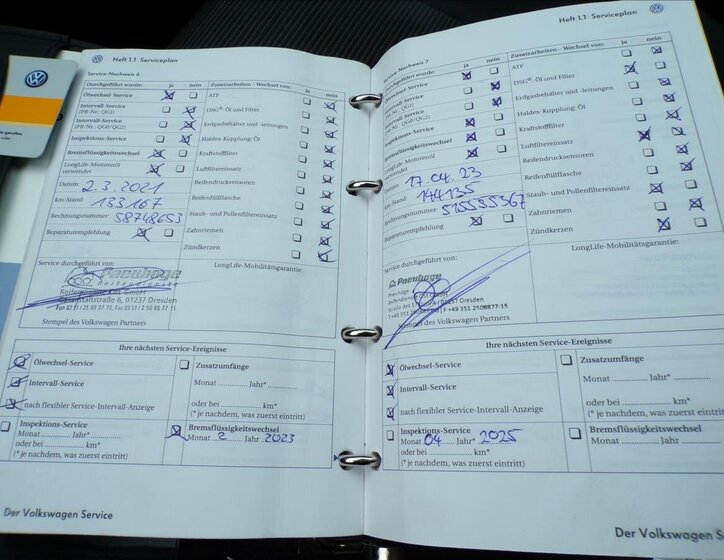 Heft 1.1 Serviceplan
Service-Nachweis 6
Durchgeführt wurde: ja nein
Ölwechsel-Service
Intervall-Service
(PR-Nr.: QG1)
Intervall-Service
(PR-Nr.: QG0/QG2)
Inspektions-Service
Bremsflüssigkeitswechsel
LongLife-Motorenöl
verwendet
Datum: 2.3.2021
km-Stand: 133167
Rechnungsnummer: 58748653
Reparaturempfehlung
Zusatzarbeiten - Wechsel von: ja nein
ATF
DSG®: Öl und Filter
Erdgasbehälter und -leitungen
Haldex-Kupplung: Öl
Kraftstofffilter
Luftfiltereinsatz
Reifendrucksensoren
Reifenfüllflasche
Staub- und Pollenfiltereinsatz
Zahnriemen
Zündkerzen
Service durchgeführt von:
LongLife-Mobilitätsgarantie:
Pneuhage
Reifendienste
6, 01237 Dresden
Stempel des Volkswagen Partners
Ihre nächsten Service-Ereignisse
Ölwechsel-Service
Intervall-Service
nach flexibler Service-Intervall-Anzeige
Inspektions-Service
Monat ............ Jahr*............
oder bei ............ km*
(* je nachdem, was zuerst eintritt)
Zusatzumfänge
Monat ............ Jahr*............
oder bei ............ km*
(* je nachdem, was zuerst eintritt)
Bremsflüssigkeitswechsel
Monat 2 Jahr 2023
Der Volkswagen Service
Heft 1.1 Serviceplan
Service-Nachweis 7
Durchgeführt wurde: ja nein
Ölwechsel-Service
Intervall-Service
(PR-Nr.: QG1)
Intervall-Service
(PR-Nr.: QG0/QG2)
Inspektions-Service
Bremsflüssigkeitswechsel
LongLife-Motorenöl
verwendet
Datum: 17.04.23
km-Stand: 144135
Rechnungsnummer: 525535367
Reparaturempfehlung
Zusatzarbeiten - Wechsel von: ja nein
ATF
DSG®: Öl und Filter
Erdgasbehälter und -leitungen
Haldex-Kupplung: Öl
Kraftstofffilter
Luftfiltereinsatz
Reifendrucksensoren
Reifenfüllflasche
Staub- und Pollenfiltereinsatz
Zahnriemen
Zündkerzen
Service durchgeführt von:
LongLife-Mobilitätsgarantie:
Pneuhage
Pneuhage
01237 Dresden
Stempel des Volkswagen Partners
Ihre nächsten Service-Ereignisse
Ölwechsel-Service
Intervall-Service
nach flexibler Service-Intervall-Anzeige
Inspektions-Service
Monat 04 Jahr* 2025
oder bei ............ km*
(* je nachdem, was zuerst eintritt)
Zusatzumfänge
Monat ............ Jahr*............
oder bei ............ km*
(* je nachdem, was zuerst eintritt)
Bremsflüssigkeitswechsel
Monat ............ Jahr ............
Der Volkswagen